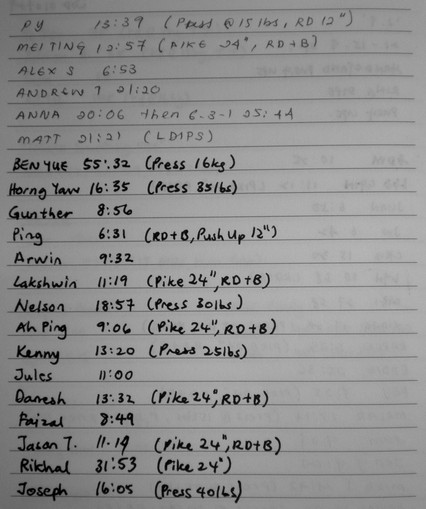 PY 13:39 (Press @ 15 lbs, RD 12")
MEITING 12:57 (PIKE 24", RD+B)
ALEX S 6:53
ANDREW T 21:20
ANNA 20:06 then 6-3-1 25:44
MATT 21:21 (LDIPS)
BEN YUE 55:32 (Press 16kg)
Horng Yaw 16:35 (Press 35lbs)
Gunther 8:56
Ping 6:31 (RD+B, Push Up 12")
Arwin 9:32
Lakshwin 11:19 (Pike 24", RD+B)
Nelson 18:57 (Press 30lbs)
Ah Ping 9:06 (Pike 24", RD+B)
Kenny 13:20 (Press 25lbs)
Jules 11:00
Danesh 13:32 (Pike 24", RD+B)
Faizal 8:49
Jason T. 11.19 (Pike 24", RD+B)
Rikhal 31:53 (Pike 24")
Joseph 16:05 (Press 40lbs)